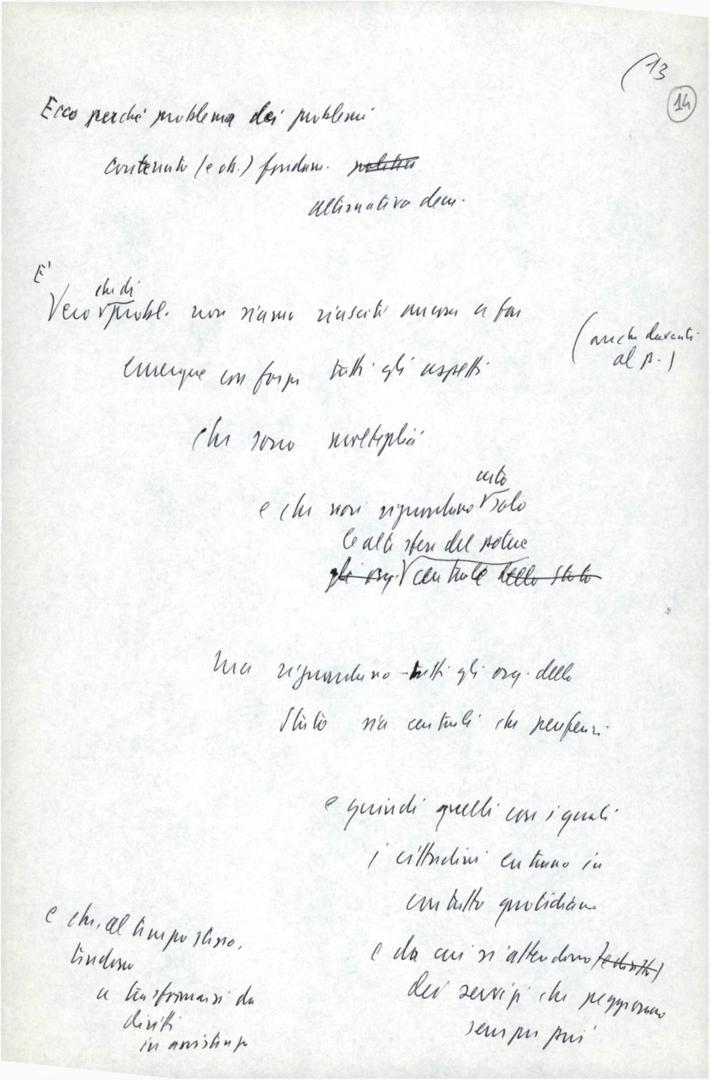 (13
14
Ecco perché problema dei problemi
contenuto (e ob.) fondam. politico
alternativa dem.
E'
che di
Vero probl. non siamo riusciti ancora a far
(anche davanti
al p.)
emergere con forza tutti gli aspetti
che sono molteplici
certo
e che non riguardano solo
le alte sfere del potere
gli org. centrale dello Stato
ma riguardano tutti gli org. dello
Stato sia centrali che periferi.
e quindi quelli con i quali
i cittadini entrano in
contatto quotidiano
e da cui si attendono
dei servizi che peggiorano
sempre più
e che, al tempo stesso,
tendono
a trasformarsi da
diritti
in assistenza